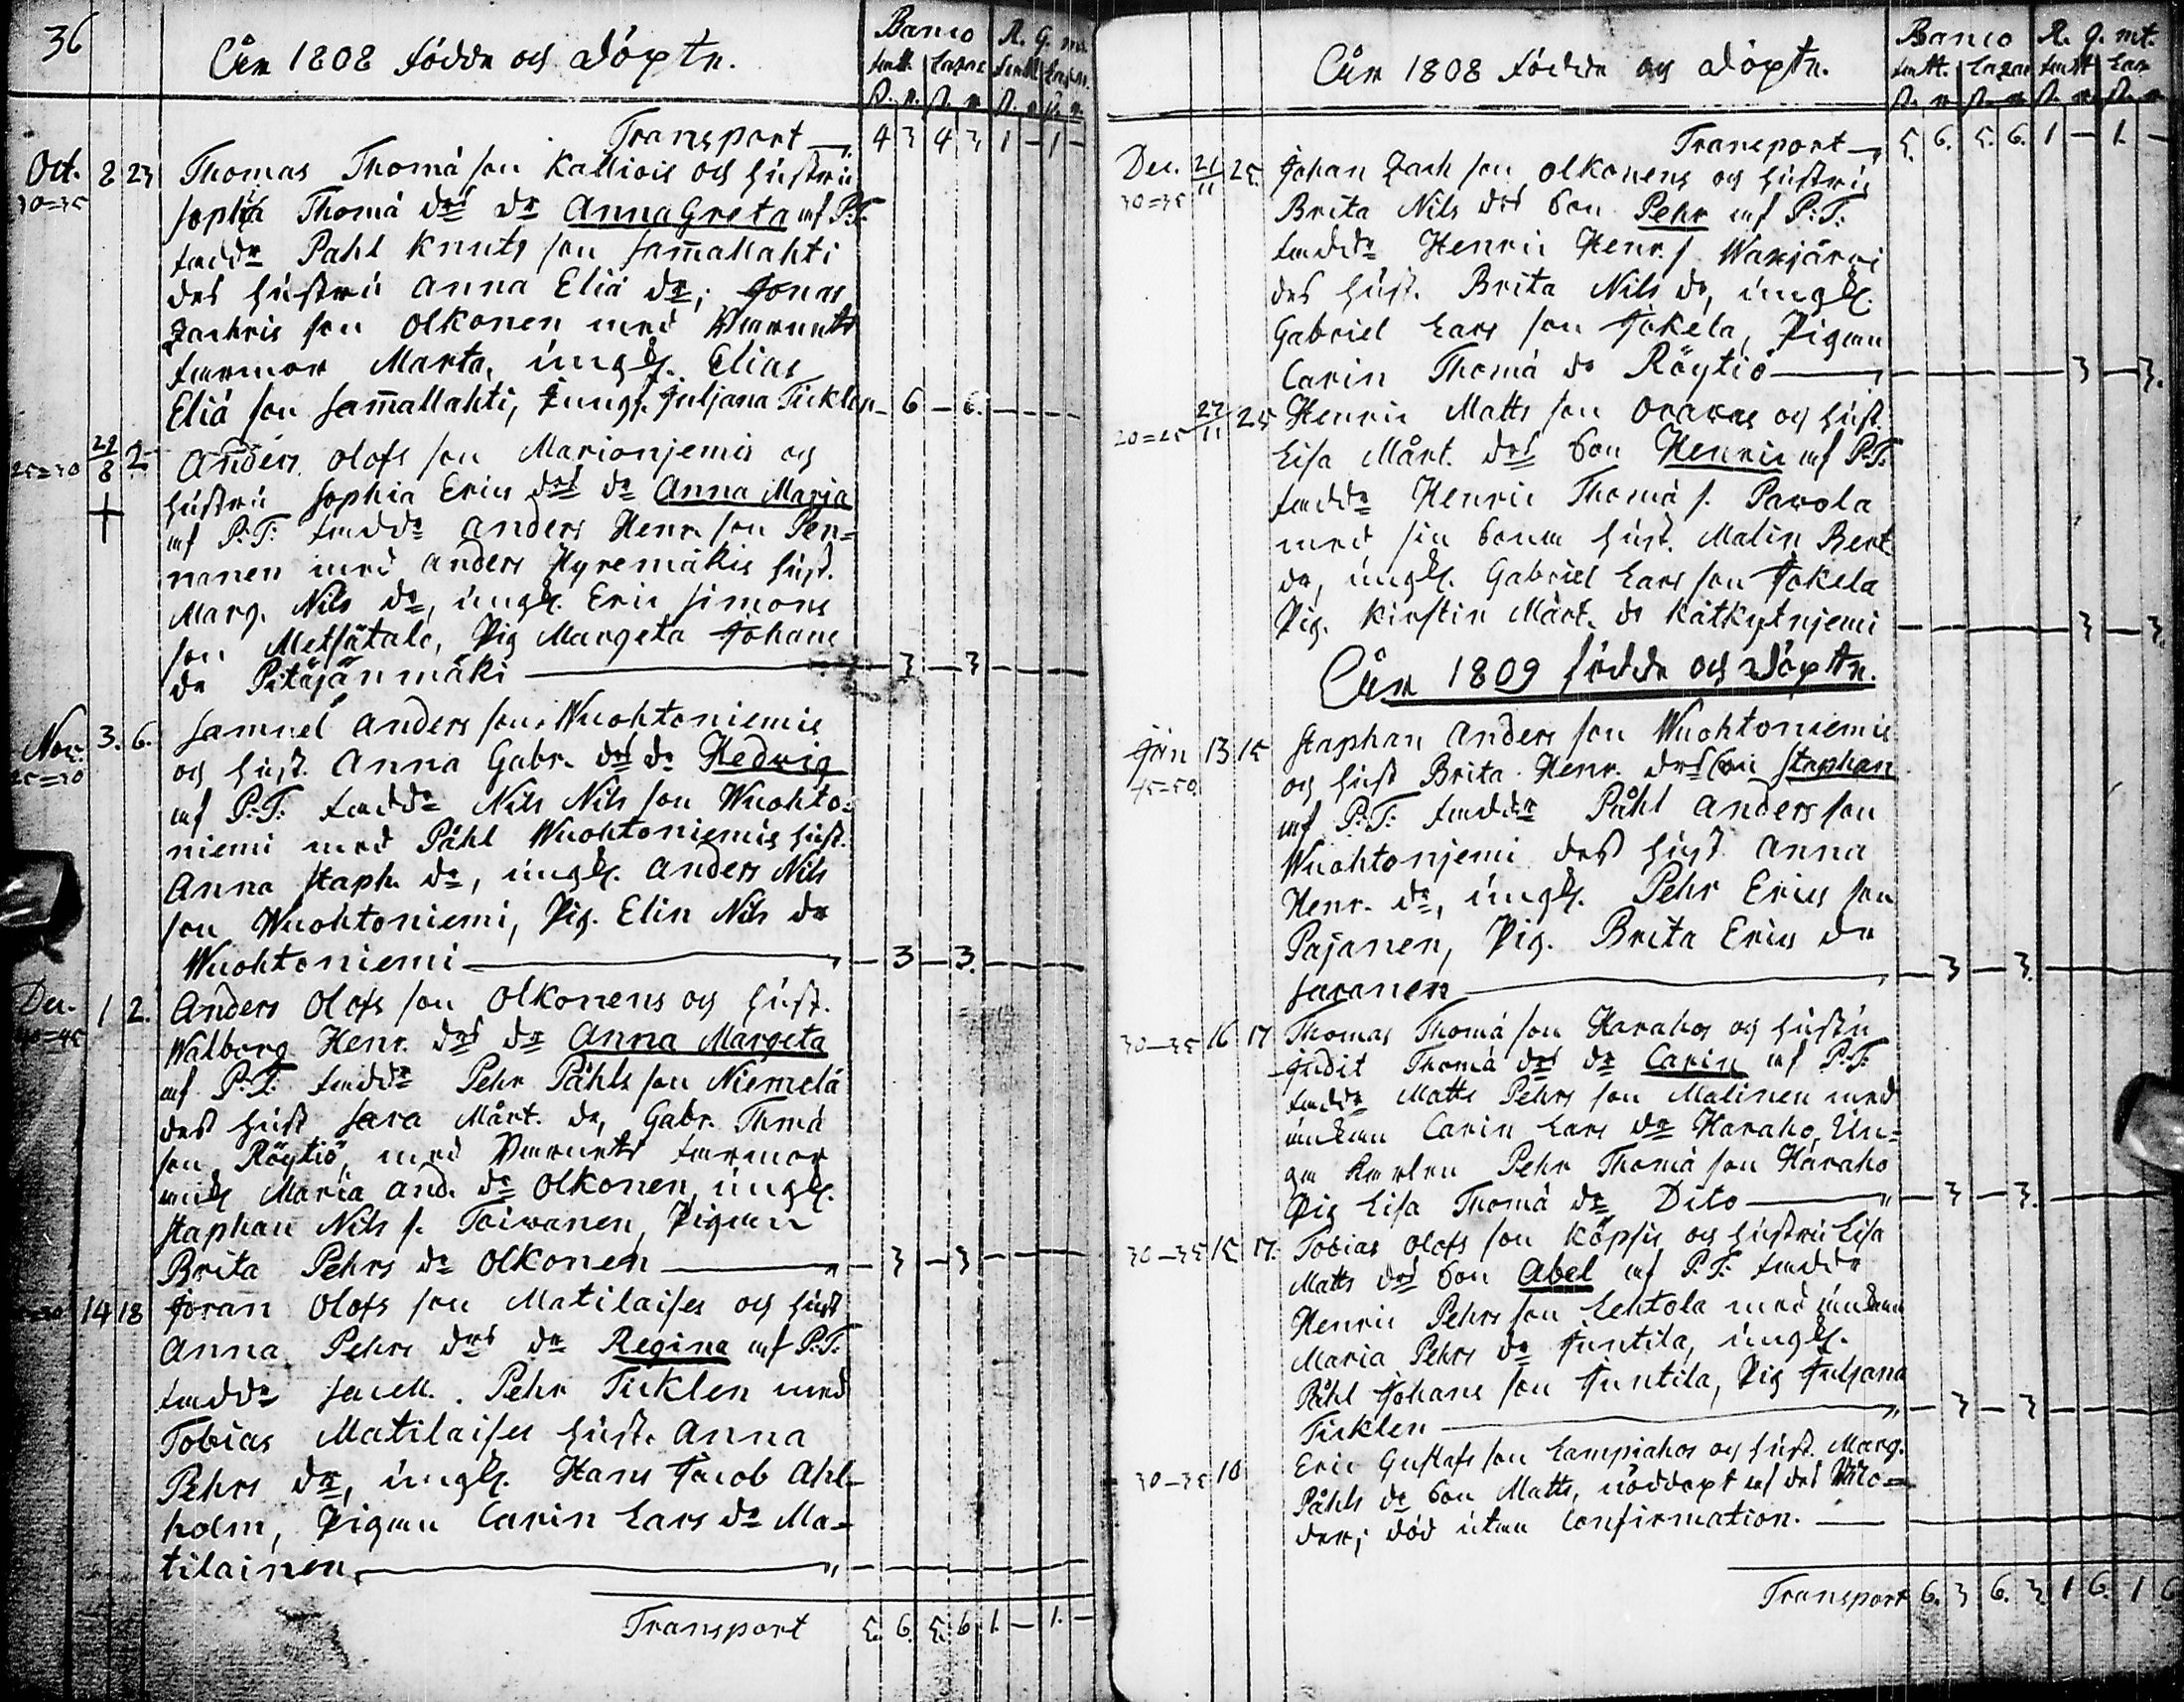 36
Åm 1808 födde och döpte.
Banco R. G. mt.
Transport 4 3 4 3 1 - 1 -
Oct. 8 23 Thomas Thomä son Kalliois och hustru
30=35 Sophia Thomä drs dr Anna Greta af P:T:
fadd: Påhl Knuts son Sam̄allahti
des hustru Anna Eliä dr; Jonas
Zachris son Olkonen med Barnets
farmor Marta, ungk. Elias
Eliä son Sam̄allahti, Jungf. Juljana Ticklen - 6 - 6. - - - -
25=30 29/8 2 Anders Olofs son Marjonjemis och
hustru Sophia Erics drs dr Anna Marja
af P:T: fadde Anders Henr. son Pen=
nanen med Anders Hyremäkis hust.
Marg. Nils dr, ungk. Eric Simons
son Metsätalo, Pig Margeta Johans
dr Pitäjänmäki - 3 - 3 - - - -
Nov. 3. 6. Samuel Anders son Wuohtoniemis
25=30 och hust. Anna Gabr. drs dr Hedwig
af P:T: fadde Nils Nils son Wuohto=
niemi med Påhl Wuohtoniemis hust.
Anna Staph. dr, ungk. Anders Nils
son Wuohtoniemi, Pig. Elin Nils dr
Wuohtoniemi - 3 - 3. - - - -
Dec. 1 2. Anders Olofs son Olkonens och hust.
40=45 Walborg Henr. drs dr Anna Margeta
af P:T: fadde Pehr Påhls son Niemelä
des hust Sara Mårt. dr, Gabr. Thmä
son Röytiö, med Barnets farmor
enk Maria And. dr Olkonen, ungk.
Staphan Nils s. Toiwanen, Pigan
Brita Pehrs dr Olkonen - 3 - 3 - - - -
14 18 Göran Olofs son Matilaises och hust
Anna Pehrs drs dr Regina af P:T:
fadde Pehr Ticklen med
Tobias Matilaises hust. Anna
Pehrs dr, ungk. Hans Jacob Ahl-
holm, Pigan Carin Lars dr Ma-
tilainen. - - - - - - - -
Transport 5. 6. 5. 6. 1. - 1. -
Åm 1808 födde och döpte.
Banco R. G. mt.
Transport 5. 6. 5. 6. 1 - 1. -
Dec. 21/11 25. Johan Zach son Olkonens och hustru
30=35 Brita Nils drs son Pehr af P:T:
fadde Henric Henr. s. Warjärwi
des hust. Brita Nils dr, ungk.
Gabriel Lars son Jokela, Pigan
Carin Thomä dr Röytiö - - - - - 3 - 3.
20=25 27/11 25 Henric Matts son Orawas och hust.
Lisa Mårt. drs son Henric af P:T:
fadde Henric Thomä s. Parola
med sin sons hust. Malin Bert.
dr, ungk. Gabriel Lars son Jokela
Pig. Kirstin Mårt. dr Kätkytnjemi - - - - - 3 - 3.
Åm 1809 födde och döpte.
Jan 13 15 Staphan Anders son Wuohtoniemis
45=50 och hust Brita Henr. drs son Staphan
af P:T: fadde Påhl Anders son
Wuohtonjemi des hust Anna
Henr. dr, ungk. Pehr Erics son
Pajanen, Pig. Brita Erics dr
Saranen - 3 - 3. - - - -
30-35 16 17 Thomas Thomä son Harahos och hustru
Judit Thomä drs dr Carin af P:T:
fadde Matts Pehrs son Malinen med
enkan Carin Lars dr Haraho, Un=
ga Karlen Pehr Thomä son Haraho
Pig Lisa Thomä dr Dito - 3 - 3. - - - -
30-35 15 17. Tobias Olofs son Köpsis och hustru Lisa
Matts drs son Abel af P:T: fadde
Henric Pehrs son Lehtola med enkan
Maria Pehrs dr Juntila, ungk.
Påhl Johans son Juntila, Pig Juljana
Ticklen - 3 - 3 - - - -
30-35 10 Eric Gustafs son Lampiahos och hust. Marg.
Påhls dr son Matts, nöddöpt af des Mo=
der; död utan Confirmation. - - - - - - - -
Transport 6. 3 6. 3 1 6. 1 6